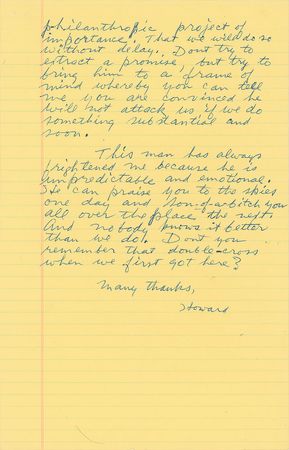 philanthropic project of
importance. That we will do so
without delay. Dont try to
extract a promise, but try to
bring him to a frame of
mind whereby you can tell
me you are convinced he
will not attack us if we do
something substantial and
soon.
This man has always
frightened me because he is
unpredictable and emotional.
He can praise you to the skies
one day and son-of-a-bitch you
all over the place the next.
And nobody knows it better
than we do. Dont you
remember that double-cross
when we first got here?
Many thanks,
Howard